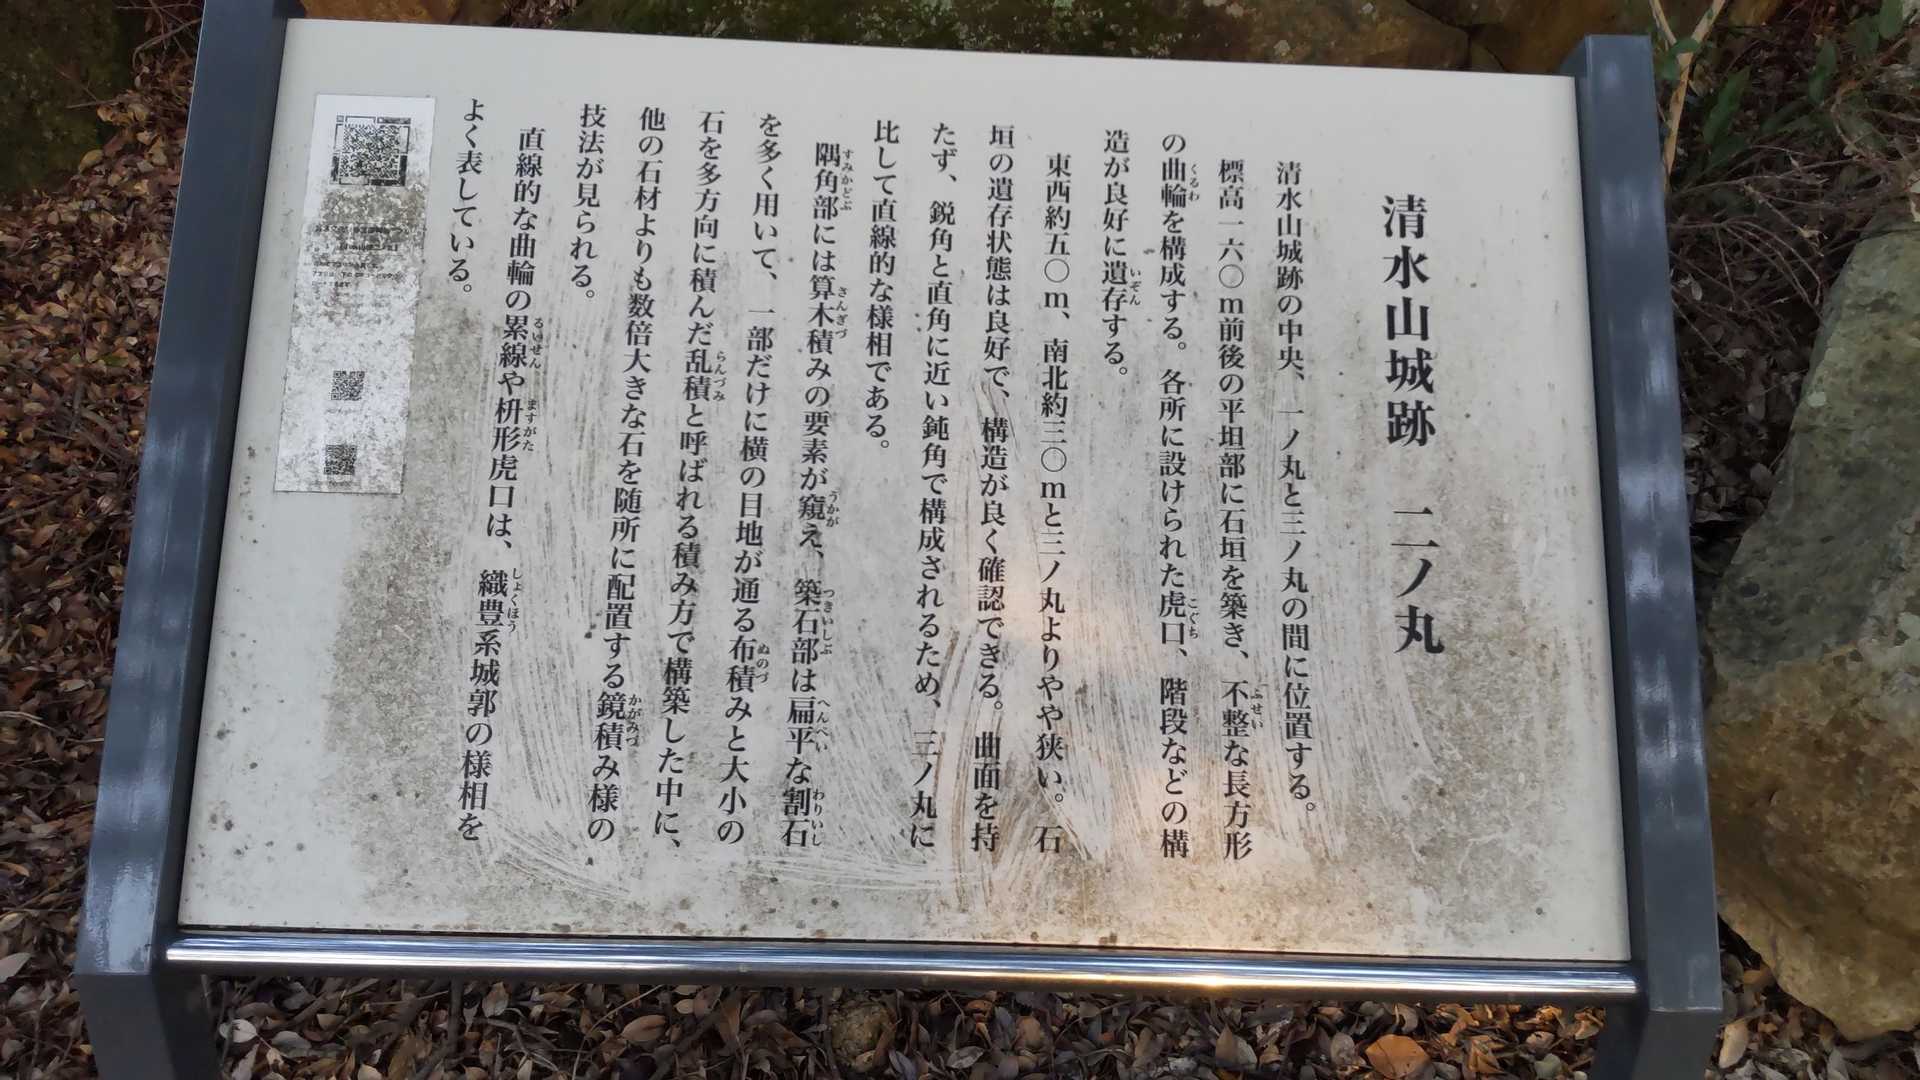 清水山城跡　二ノ丸
清水山城跡の中央、一ノ丸と三ノ丸の間に位置する。
標高一六〇ｍ前後の平坦部に石垣を築き、不整な長方形
の曲輪を構成する。各所に設けられた虎口、階段などの構
造が良好に遺存する。
東西約五〇ｍ、南北約三〇ｍと三ノ丸よりやや狭い。石
垣の遺存状態は良好で、構造が良く確認できる。曲面を持
たず、鋭角と直角に近い鈍角で構成されるため、三ノ丸に
比して直線的な様相である。
隅角部には算木積みの要素が窺え、築石部は扁平な割石
を多く用いて、一部だけに横の目地が通る布積みと大小の
石を多方向に積んだ乱積と呼ばれる積み方で構築した中に、
他の石材よりも数倍大きな石を随所に配置する鏡積み様の
技法が見られる。
直線的な曲輪の累線や枡形虎口は、織豊系城郭の様相を
よく表している。